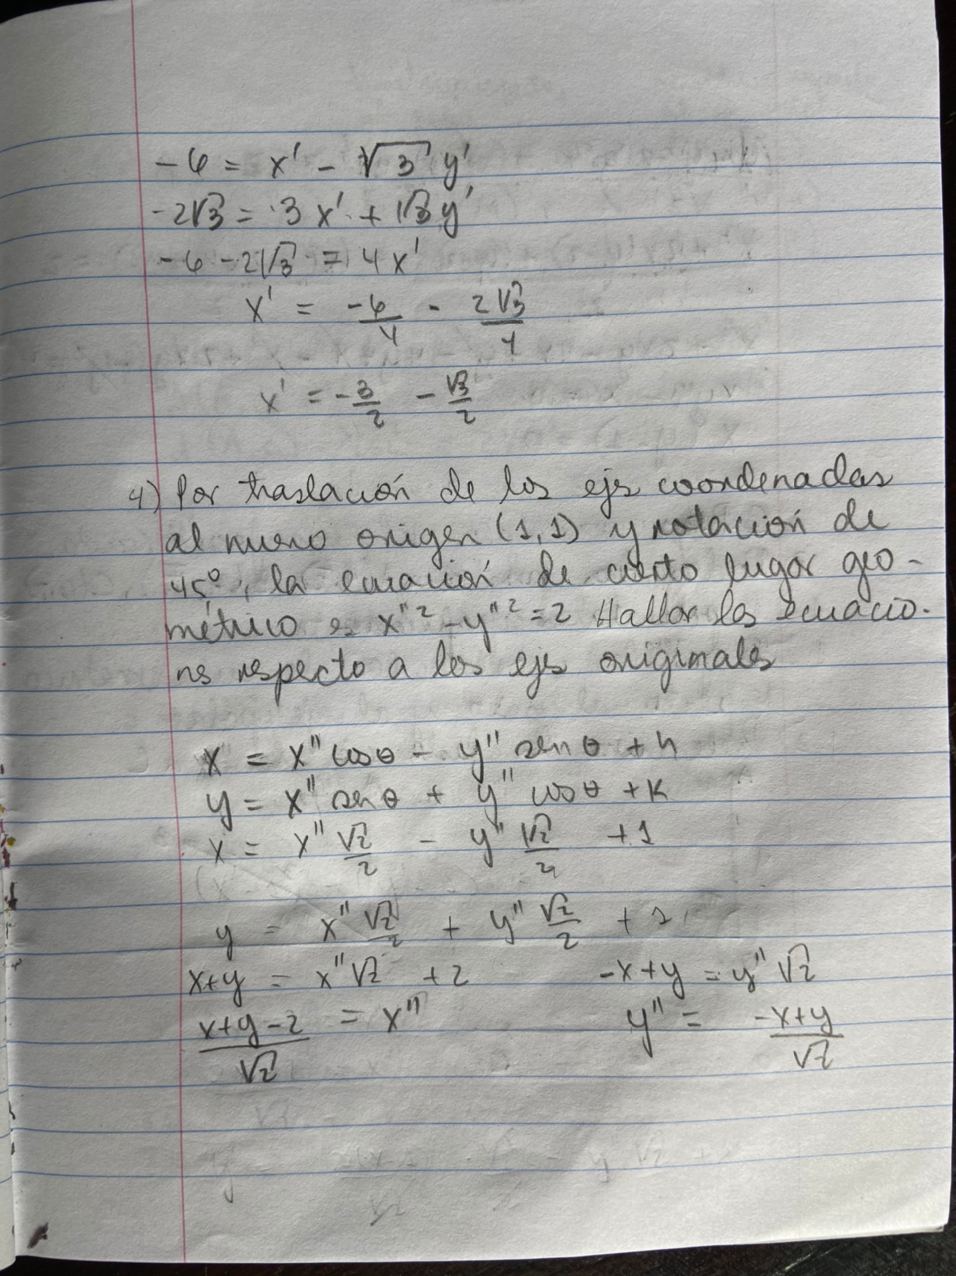 -6 = x' - √3 y'
-2√3 = 3x' + √3 y'
-6 - 2√3 = 4x'
x' = -6/4 - 2√3/4
x' = -3/2 - √3/2
4) Por traslación de los ejes coordenadas
al nuevo origen (1,1) y rotación de
45°, la ecuación de cierto lugar geo-
métrico es x''² - y''² = 2 Hallar las ecuacio-
nes respecto a los ejes originales
x = x'' cos θ - y'' sen θ + h
y = x'' sen θ + y'' cos θ + k
x = x'' √2/2 - y'' √2/2 + 1
y = x'' √2/2 + y'' √2/2 + 1
x+y = x''√2 + 2 -x+y = y''√2
x+y-2/√2 = x'' y'' = -x+y/√2